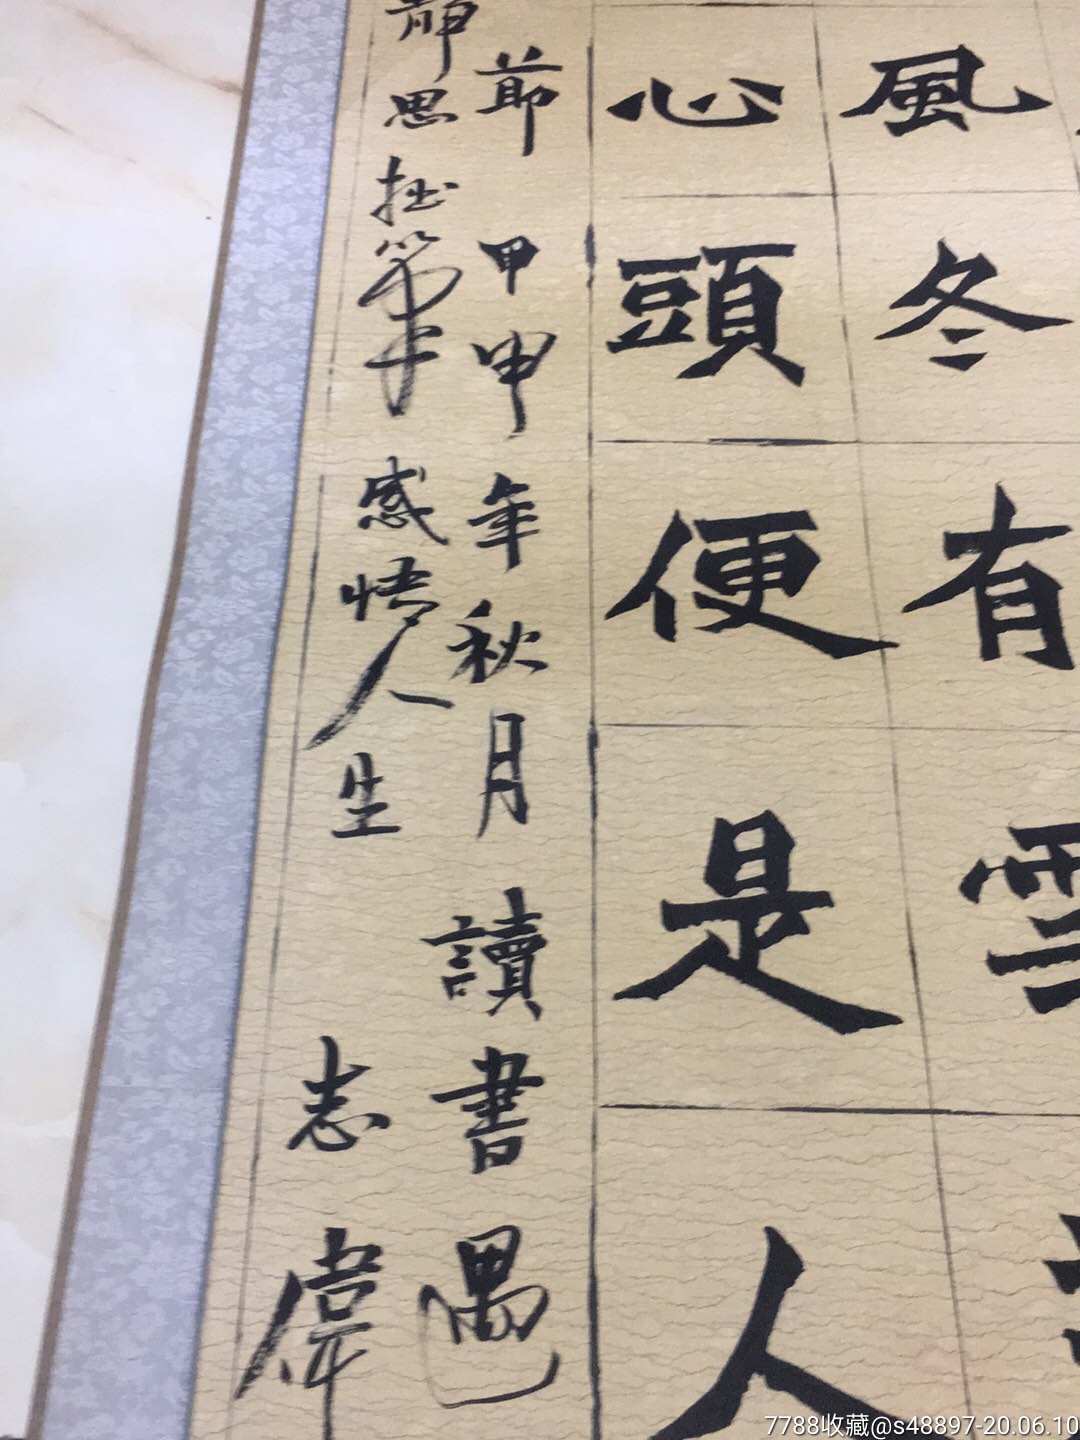 風冬有雪
心頭便是人
節甲申年秋月讀書遇
靜思拙筆感悟人生志偉
7788收藏@s48897-20.06.10